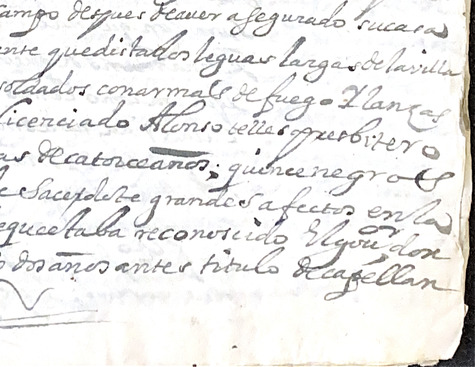 campo despues deaver asegurado sucasa
ente quedista dos leguas largas de la villa
soldados con armas de fuego Y lanzas
licenciado Alonso telles presbitero
as decatorce años; quince negros
e Sacerdote grandes afectos en la
equeestaba reconosido El gou.or don
o dos años antes titulo de capellan